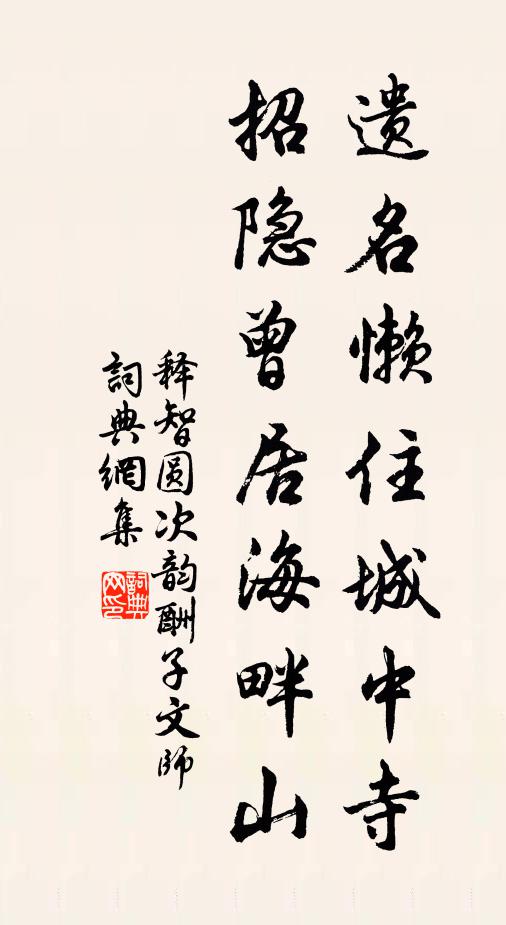 遗名懒住城中寺
招隐曾居海畔山
释智圆次韵酬子文师
詞典網集
詞典网印